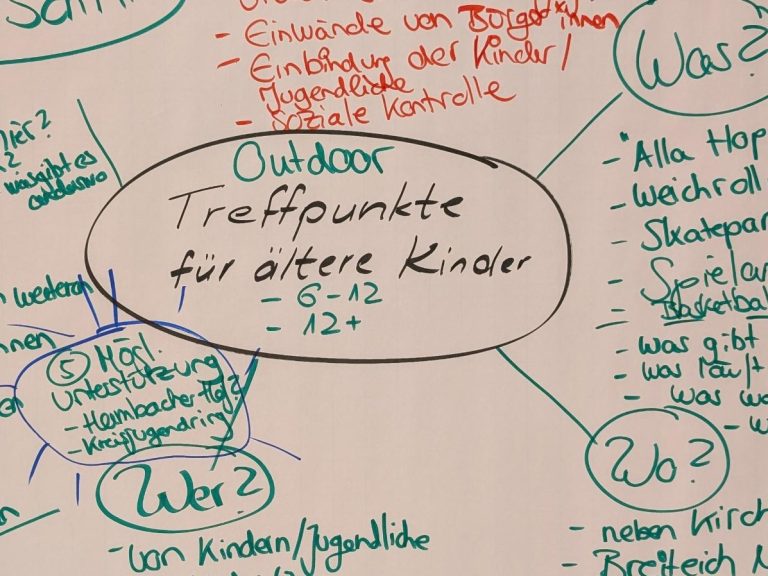 - Einwände von Bürger*innen
- Einbindung der Kinder/
Jugendliche
- Soziale Kontrolle
Was?
- Alla Hop
- Weichroll
- Skatepar
- Spiela
- Basketbal
- was gibt
- was läuft
- was
Outdoor
Treffpunkte
für ältere Kinder
- 6-12
- 12+
hier?
was gibt es
weiteren
nnen
⑤ Mögl.
Unterstützung
- Heimbacher Hof?
- Kreisjugendring
Wer?
- von Kindern/Jugendliche
Wo?
- neben Kirch
- Breiteich